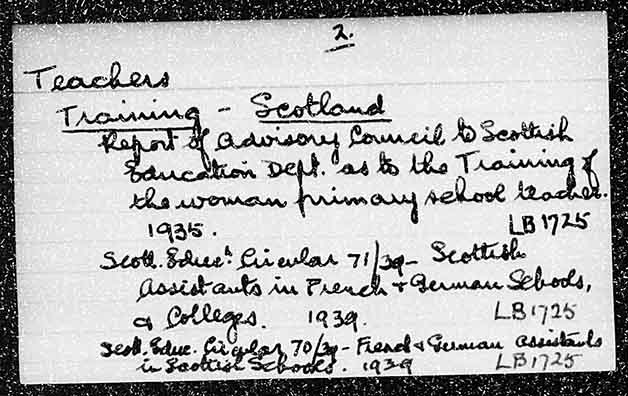 2.
Teachers
Training - Scotland
Report of Advisory Council to Scottish
Education Dept. as to the Training of
the woman primary school teacher.
1935. LB1725
Scott. Educn. Circular 71/39 - Scottish
Assistants in French + German Schools,
& Colleges. 1939. LB1725
Scott. Educ. Circular 70/39 - French & German Assistants
in Scottish Schools. 1939 LB1725